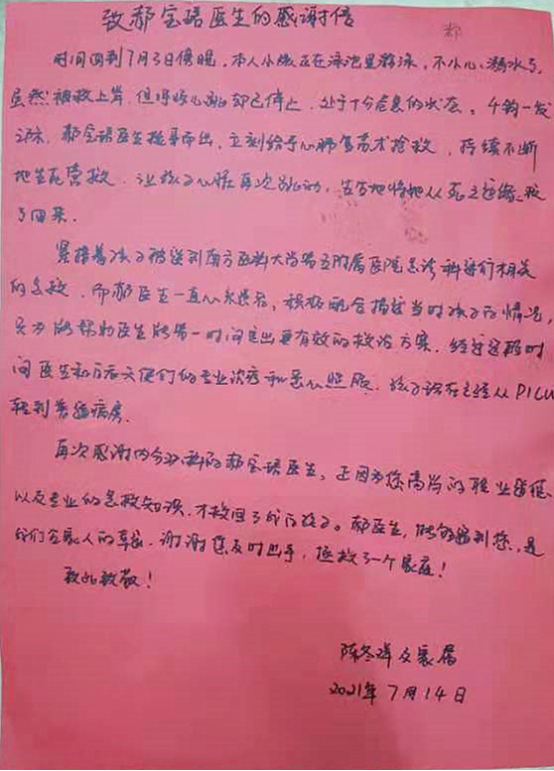 致郝宝珺医生的感谢信
郝
时间回到7月3日傍晚,本人小孩正在泳池里游泳,不小心溺水了,
虽然被救上岸,但呼吸心跳却已停止,处于十分危急的状态。千钧一发
之际,郝宝珺医生挺身而出,立刻给予心肺复苏术抢救,持续不断
地生死营救,让孩子心脏再次跳动,生生地将他从死亡边缘救
了回来。
紧接着孩子被送到南方医科大学第五附属医院急诊科进行相关
的急救,而郝医生一直心系患者,积极配合描述当时孩子的情况,
只为能帮助医生能第一时间定出更有效的救治方案。经过这段时
间医生和白衣天使们的专业治疗和悉心照顾,孩子现在已经从PICU
转到普通病房。
再次感谢内分泌科的郝宝珺医生,正因为您高尚的职业道德
以及专业的急救知识,才救回了我的孩子。郝医生,能够遇到您,是
我们全家人的幸运,谢谢您及时出手,拯救了一个家庭!
致此敬礼!
陈冬 及家属
2021年7月14日